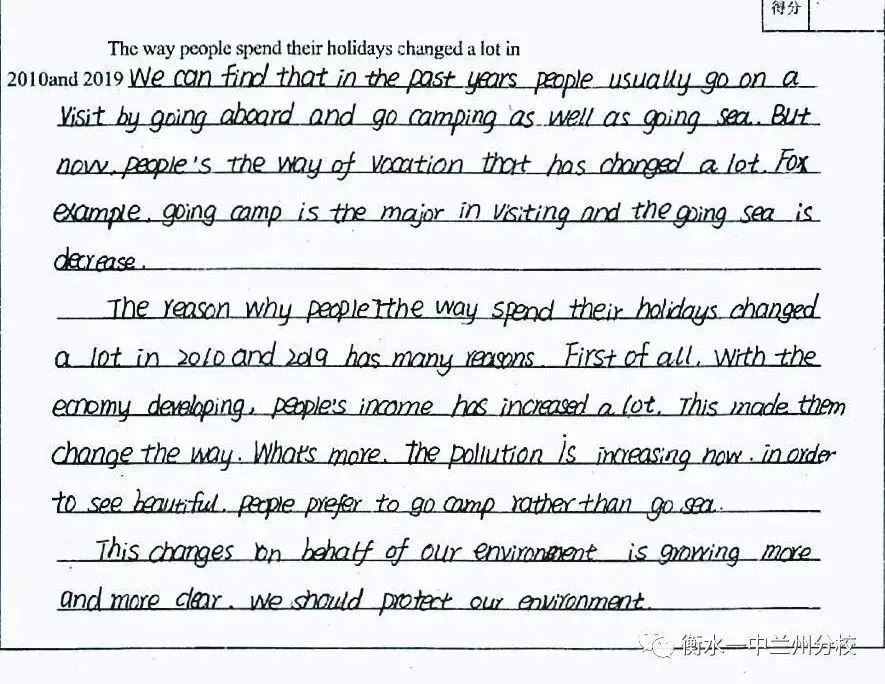 得分
The way people spend their holidays changed a lot in
2010and 2019 We can find that in the past years people usually go on a
Visit by going aboard and go camping as well as going sea. But
now, people's the way of vacation that has changed a lot. Fox
example, going camp is the major in visiting and the going sea is
decrease.
The reason why people the way spend their holidays changed
a lot in 2010 and 2019 has many reasons. First of all, With the
ecnomy developing, people's income has increased a lot. This made them
change the way. What's more, the pollution is increasing now. in order
to see beautiful, people prefer to go camp rather than go sea.
This changes on behalf of our environment is growing more
and more clear. we should protect our environment.
衡水一中兰州分校